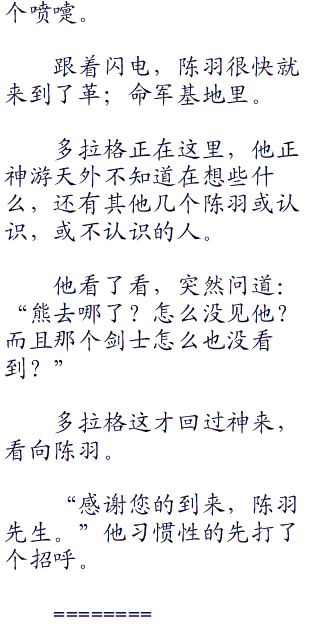 个喷嚏。
跟着闪电，陈羽很快就
来到了革；命军基地里。
多拉格正在这里，他正
神游天外不知道在想些什
么，还有其他几个陈羽或认
识，或不认识的人。
他看了看，突然问道：
“熊去哪了？怎么没见他？
而且那个剑士怎么也没看
到？”
多拉格这才回过神来，
看向陈羽。
“感谢您的到来，陈羽
先生。”他习惯性的先打了
个招呼。
========